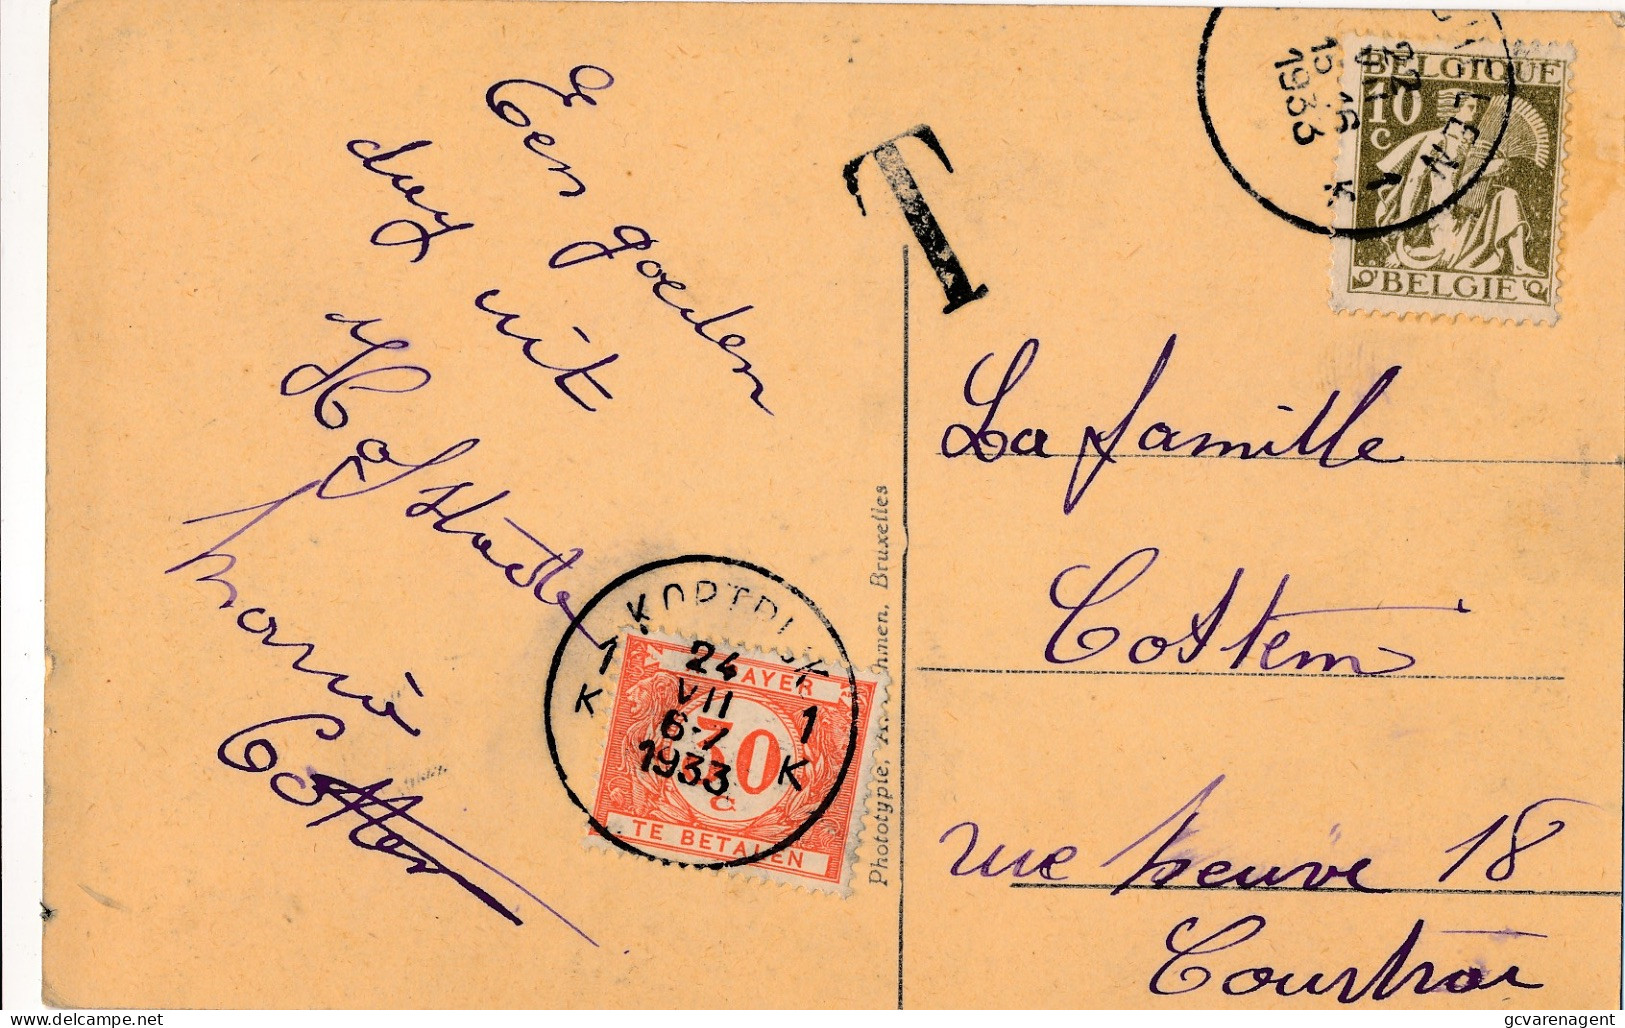 Een goeden
dag uit
Hofstade
Marie
Cottem
T
22
VII
15-16
1933
BELGIQUE
10
c
BELGIE
La famille
Cottem
rue neuve 18
Courtrai
KORTRIJK
1 1
K K
24
VII
6-7
1933
A PAYER
30
c
TE BETALEN
Phototypie, A. Dohmen, Bruxelles
gcvarenagent